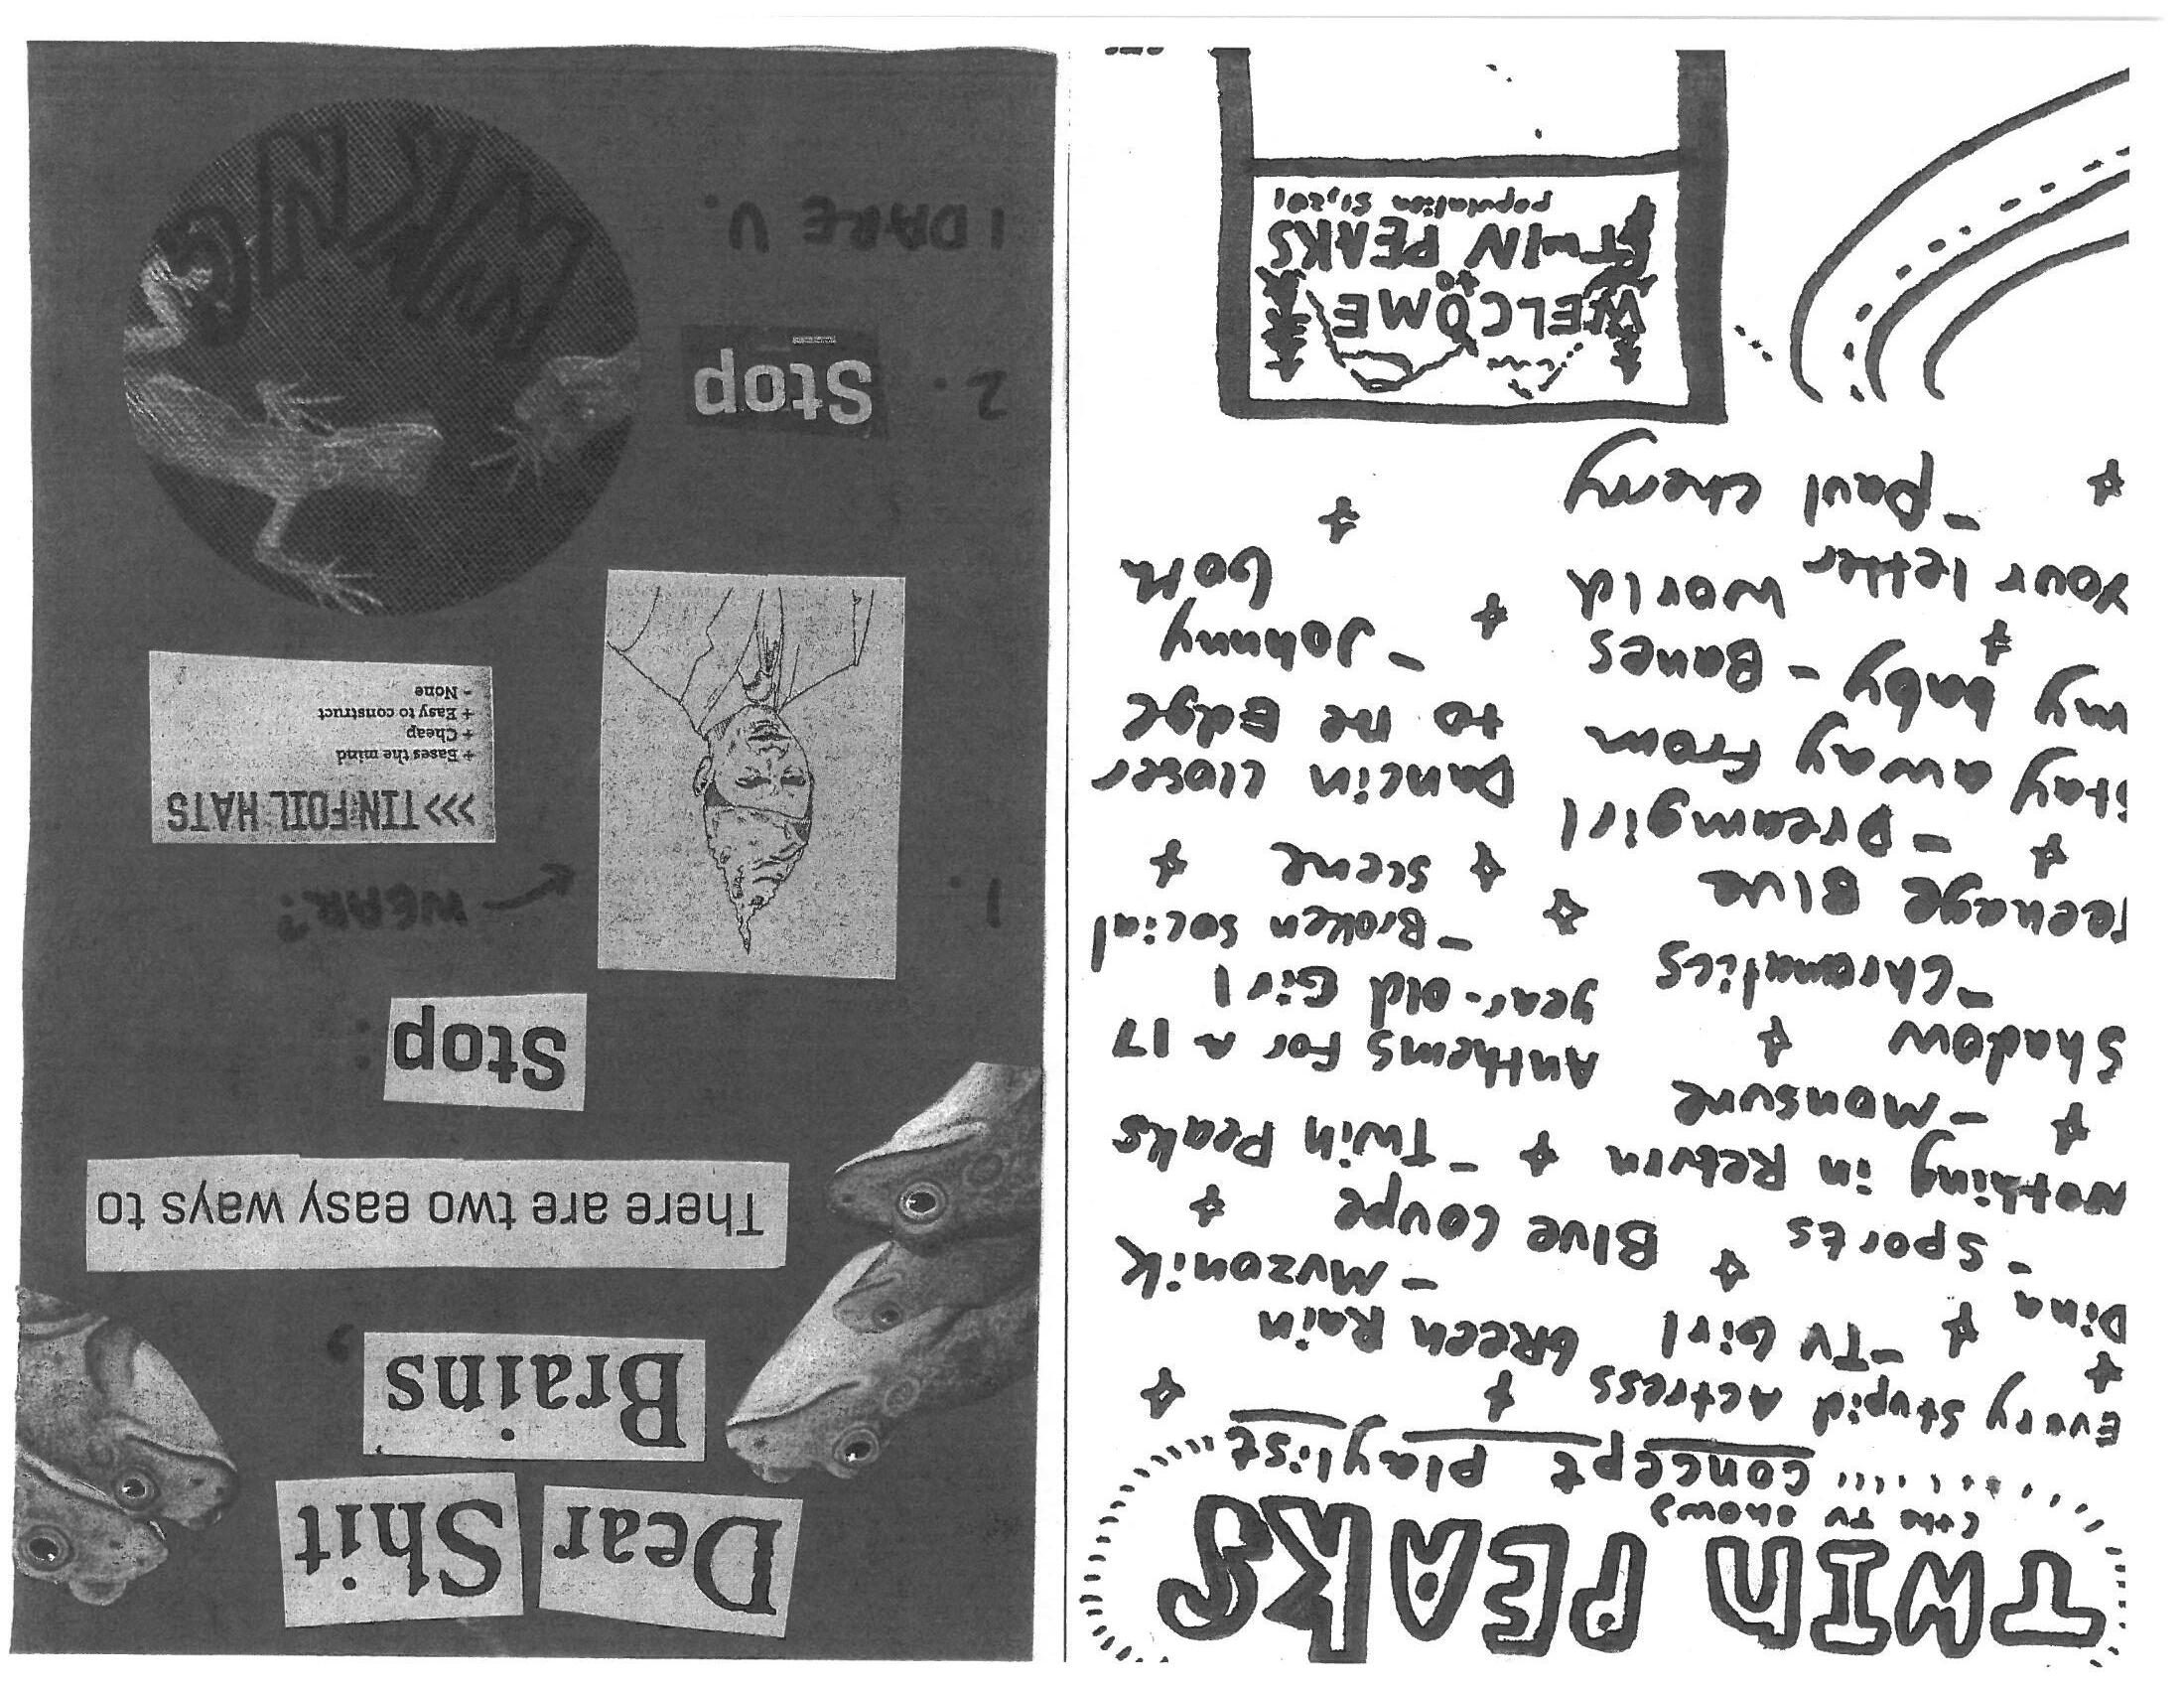 TWIN PEAKS
(the TV show)
concept playlist
Every Stupid Actress
-TV Girl
Dina
-Sports
Nothing in Return
-Monsune
Shadow
-Chromatics
Teenage Blue
-Dreamgirl
Stay away from
my baby - Banes
World
Your letter
-Paul Cherry
GReen Rain
-Muzonik
Blue Coupe
-Twin Peaks
Anthems For a 17
year-old Girl
-Broken social
scene
Dancin closer
to the Edge
-Johnny
Goth
WELCOME
to
TWIN PEAKS
population 51,201
Dear Shit
Brains,
There are two easy ways to
Stop:
1.
WEAR?
>>>TINFOIL HATS
+ Eases the mind
+ Cheap
+ Easy to construct
- None
2. Stop
I DARE U.